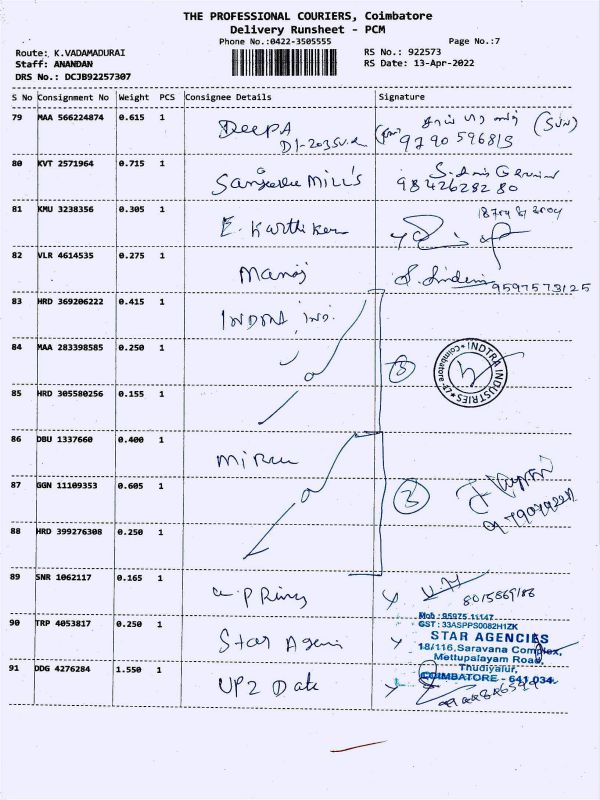 THE PROFESSIONAL COURIERS, Coimbatore
Delivery Runsheet - PCM
Phone No.:0422-3505555
Page No.:7
Route: K.VADAMADURAI
RS No.: 922573
Staff: ANANDAN
RS Date: 13-Apr-2022
DRS No.: DCJB92257307
S No Consignment No Weight PCS Consignee Details Signature
79 MAA 566224874 0.615 1 DeepA (SUN)
9790596815
80 KVT 2571964 0.715 1 Mill's
9842628280
81 KMU 3238356 0.305 1 E. Karthiken
82 VLR 4614535 0.275 1 Manoj 9597573125
83 HRD 369206222 0.415 1
84 MAA 283398585 0.250 1 5 INDTRA INDUSTRIES Coimbatore-47
85 HRD 305580256 0.155 1
86 DBU 1337660 0.400 1
87 GGN 11109353 0.605 1 3
88 HRD 399276308 0.250 1
89 SNR 1062117 0.165 1
Mob : 95975 11147
GST : 33ASPPS0082H1ZK
90 TRP 4053817 0.250 1 Star STAR AGENCIES
18/116,Saravana Complex,
Mettupalayam Road,
91 DDG 4276284 1.550 1 UP2 Date Thudiyalur,
COIMBATORE - 641 034.